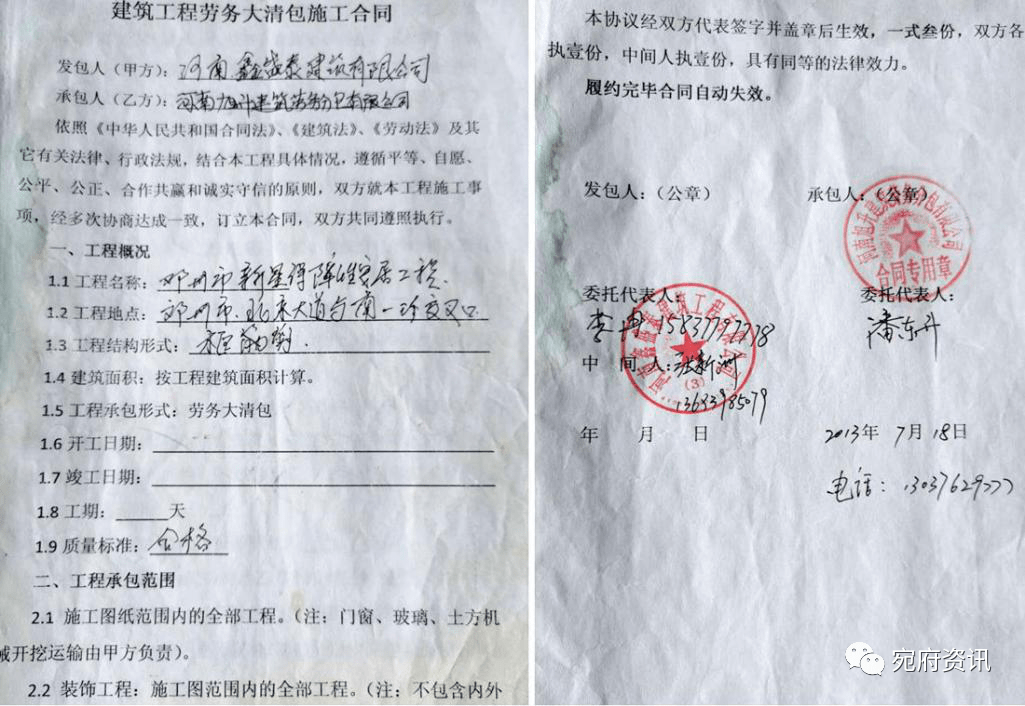 建筑工程劳务大清包施工合同
发包人（甲方）：河南鑫盛泰建筑有限公司
承包人（乙方）：河南旭升建筑劳务分包有限公司
依照《中华人民共和国合同法》、《建筑法》、《劳动法》及其
它有关法律、行政法规，结合本工程具体情况，遵循平等、自愿、
公平、公正、合作共赢和诚实守信的原则，双方就本工程施工事
项，经多次协商达成一致，订立本合同，双方共同遵照执行。
一、工程概况
1.1 工程名称：邓州市新星保障性安居工程
1.2 工程地点：邓州市北京大道与南一环交叉口
1.3 工程结构形式：框
1.4 建筑面积：按工程建筑面积计算。
1.5 工程承包形式：劳务大清包
1.6 开工日期：
1.7 竣工日期：
1.8 工期：______天
1.9 质量标准：合格
二、工程承包范围
2.1 施工图纸范围内的全部工程。（注：门窗、玻璃、土方机
械开挖运输由甲方负责）。
2.2 装饰工程：施工图范围内的全部工程。（注：不包含内外
本协议经双方代表签字并盖章后生效，一式叁份，双方各
执壹份，中间人执壹份，具有同等的法律效力。
履约完毕合同自动失效。
发包人：（公章）
承包人：（公章）
河南旭升建筑劳务分包有限公司
合同专用章
委托代表人：
李 15837797778
中 间 人：张新洲
13683985079
（3）
年 月 日
委托代表人：
潘东升
2013年 7月 18日
电话：13037629777
宛府资讯